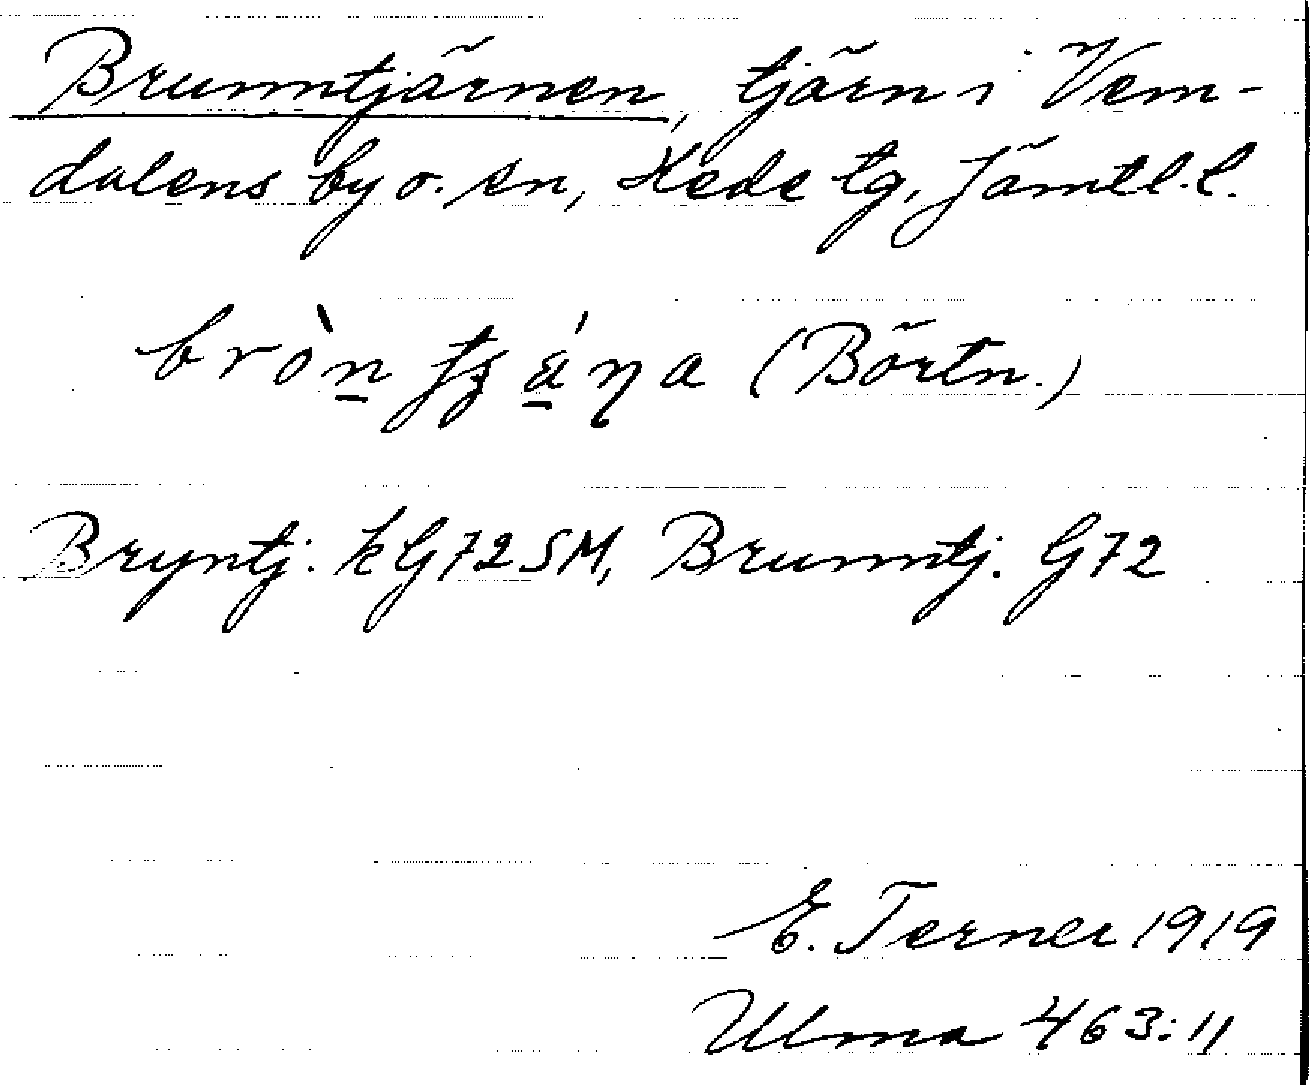 Brunntjärnen, tjärn i Vem-
dalens by o. sn, Hede tg, Jämtl. l.
bròn̲ tʂá̲ŋa (Börtn.)
Bryntj. kG72SM, Brunntj. G72
E. Terner 1919
Ulma 463:11